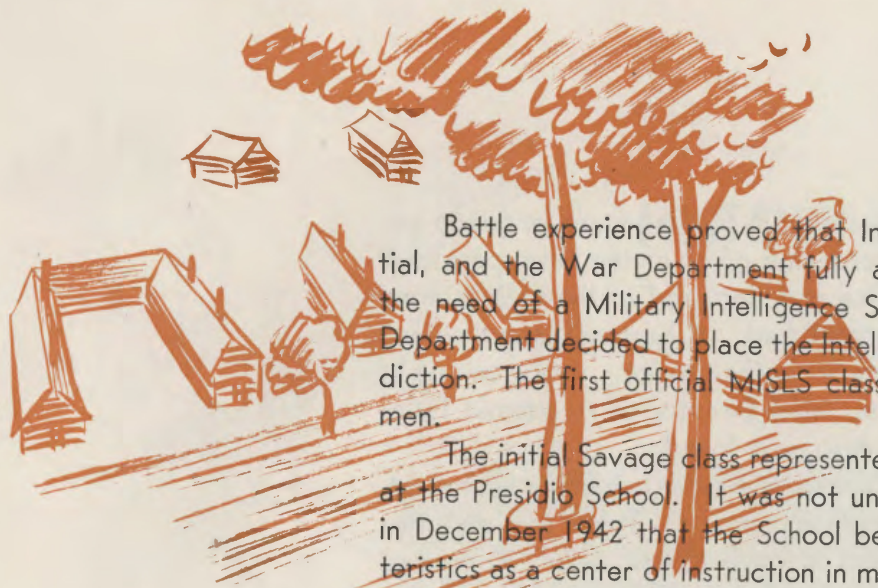 Battle experience proved that In
tial, and the War Department fully a
the need of a Military Intelligence S
Department decided to place the Intell
diction. The first official MISLS class
men.
The initial Savage class represente
at the Presidio School. It was not un
in December 1942 that the School be
teristics as a center of instruction in m